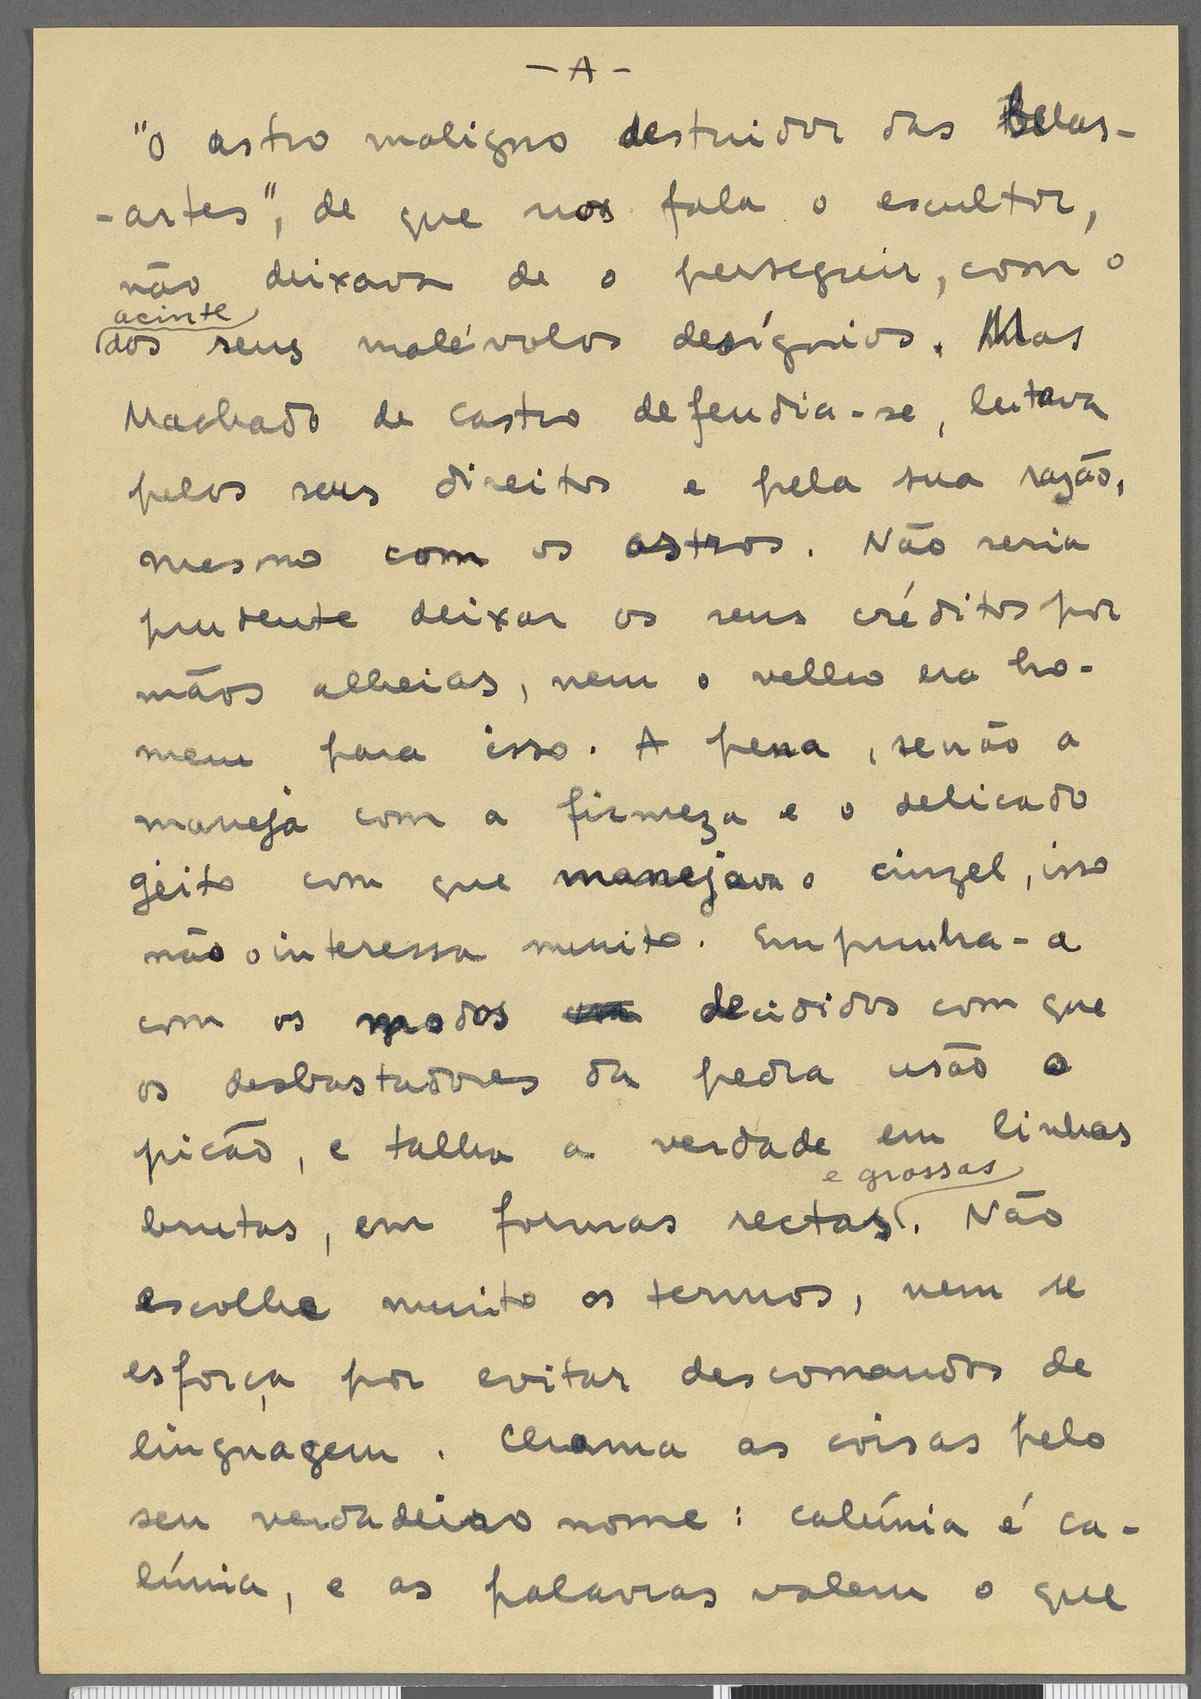 - A -
"O astro maligno destruidor das Belas-
-artes", de que nos fala o escultor,
não deixava de o perseguir, com o
acinte
dos seus malévolos desígnios. Mas
Machado de Castro defendia-se, lutava
pelos seus direitos e pela sua razão,
mesmo com os astros. Não seria
prudente deixar os seus créditos por
mãos alheias, nem o velho era ho-
mem para isso. A pena, se não a
maneja com a firmeza e o delicado
geito com que manejava o cinzel, isso
não o interessa muito. Empunha-a
com os modos decididos com que
os desbastadores da pedra usão o
picão, e talha a verdade em linhas
e grossas
brutas, em formas rectas. Não
escolhe muito os termos, nem se
esforça por evitar descomandos de
linguagem. Chama as coisas pelo
seu verdadeiro nome: calúnia é ca-
lúnia, e as palavras valem o que